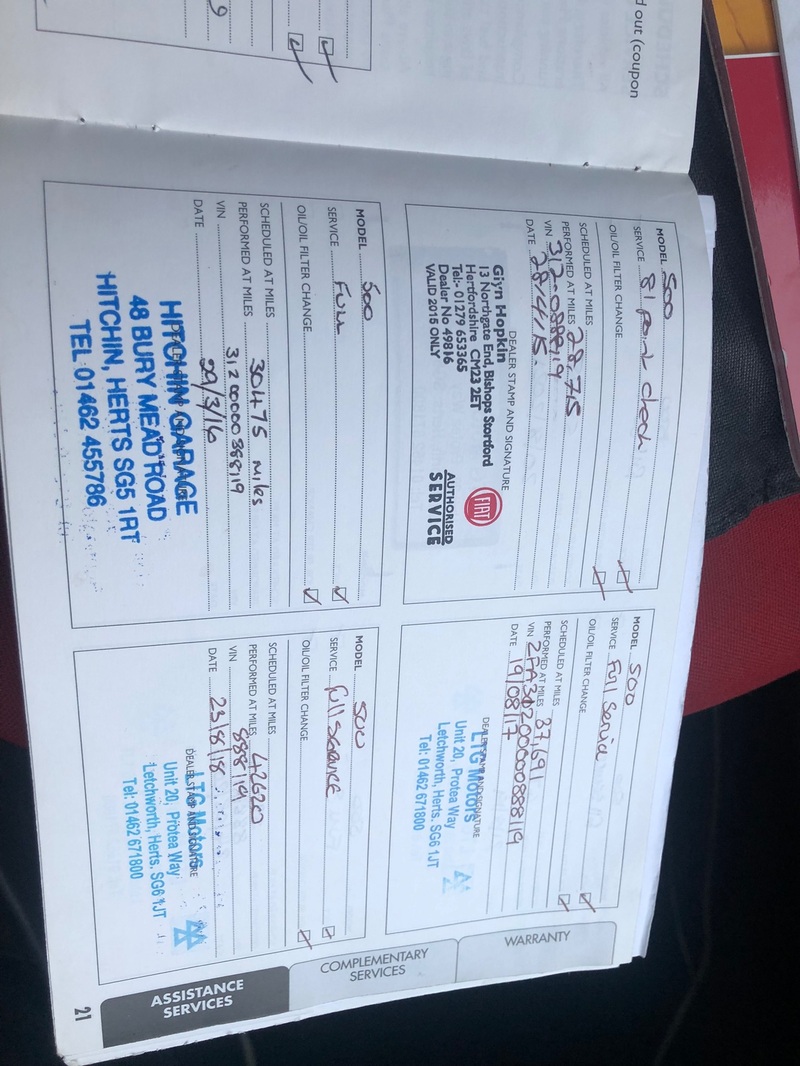 d out (coupon
MODEL 500
SERVICE 81 point check
OIL/OIL FILTER CHANGE
SCHEDULED AT MILES
PERFORMED AT MILES 28,715
VIN 312-0888119
DATE 28/4/15.
DEALER STAMP AND SIGNATURE
Glyn Hopkin
13 Northgate End, Bishops Stortford
Hertfordshire CM23 2ET
Tel:- 01279 653365
Dealer No 49816
VALID 2015 ONLY
FIAT
AUTHORISED
SERVICE
MODEL 500
SERVICE Full Service
OIL/OIL FILTER CHANGE
SCHEDULED AT MILES
PERFORMED AT MILES 37,691
VIN ZFA31200000888119
DATE 19/08/17
DEALER STAMP AND SIGNATURE
LTG Motors
Unit 20, Protea Way
Letchworth, Herts. SG6 1JT
Tel: 01462 671800
MODEL 500
SERVICE FULL
OIL/OIL FILTER CHANGE
SCHEDULED AT MILES
PERFORMED AT MILES 30475 miles
VIN 31200000888119
DATE 29/3/16
HITCHIN GARAGE
48 BURY MEAD ROAD
HITCHIN, HERTS SG5 1RT
TEL: 01462 455786
MODEL 500
SERVICE full service
OIL/OIL FILTER CHANGE
SCHEDULED AT MILES
PERFORMED AT MILES 42620
VIN 888119
DATE 23/8/18
DEALER STAMP AND SIGNATURE
LTG Motors
Unit 20, Protea Way
Letchworth, Herts. SG6 1JT
Tel: 01462 671800
WARRANTY
COMPLEMENTARY
SERVICES
ASSISTANCE
SERVICES
21